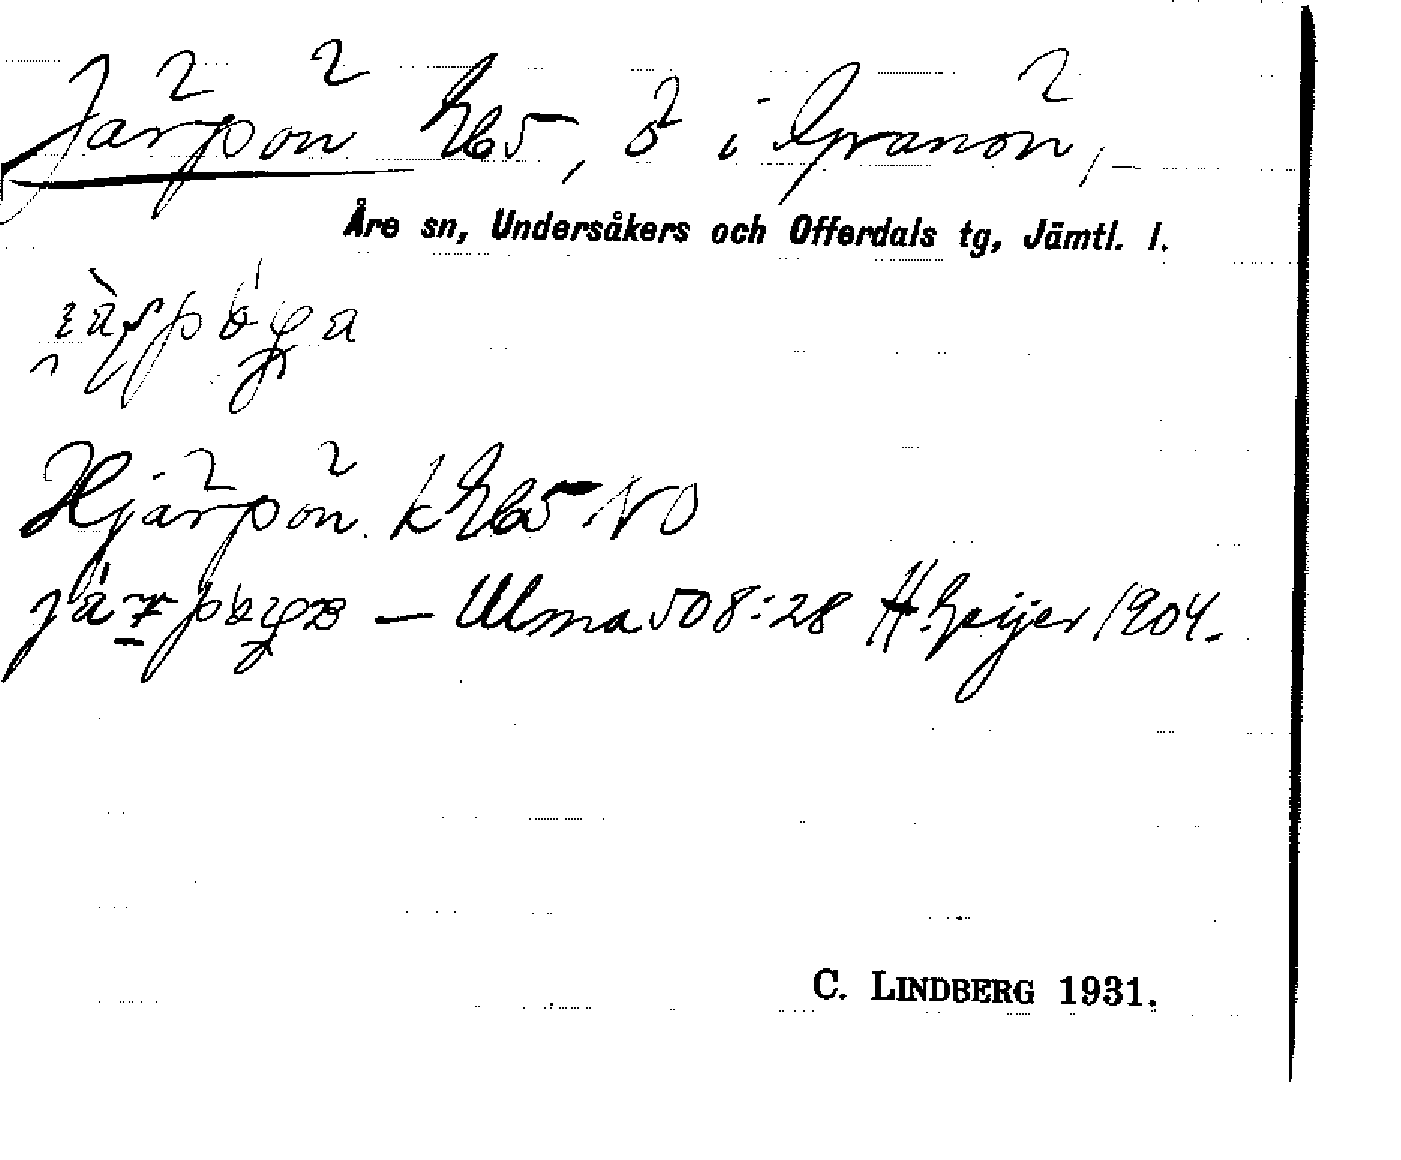 Järpön Eb5, ö i Granön,
Åre sn, Undersåkers och Offerdals tg, Jämtl. l.
Hjärpön. k Eb5 NO
— Ulma 508:28 H. Geijer 1904.
C. LINDBERG 1931.